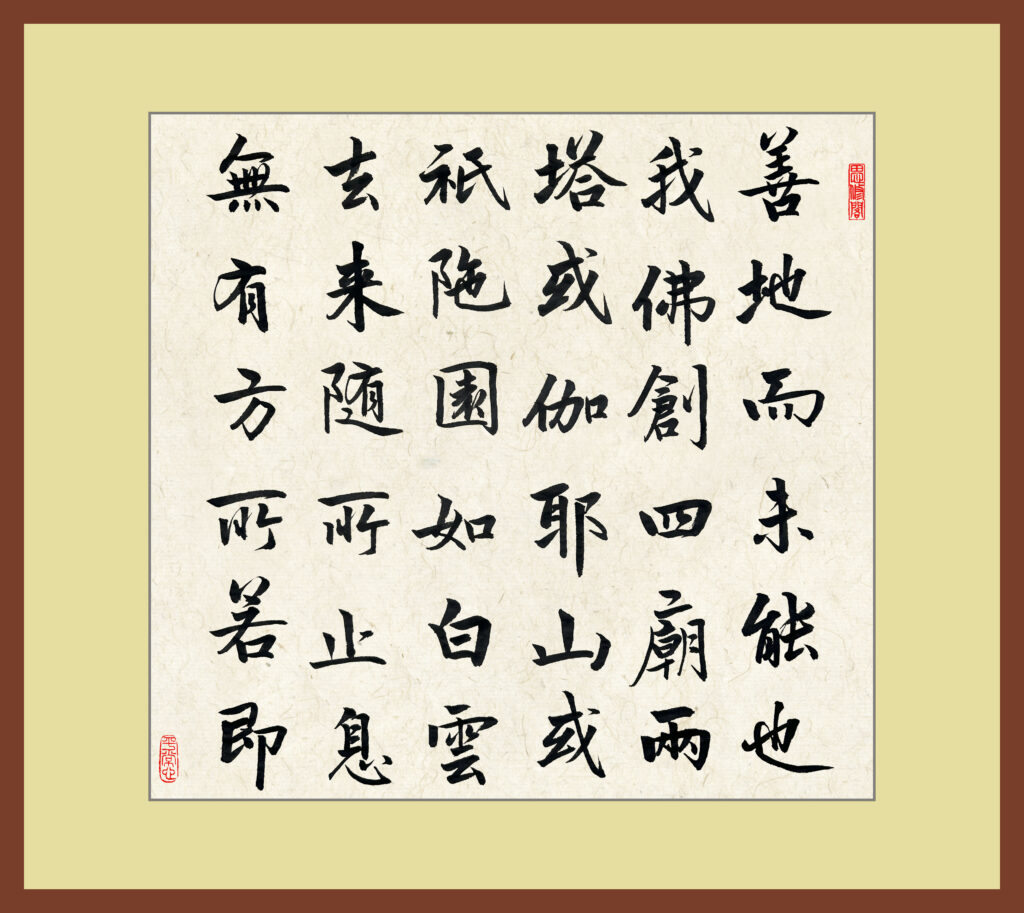 思修閣
善地而未能也
我佛創四廟兩
塔或伽耶山或
祇陁園如白雲
去来随所止息
無有方所若即
平常心